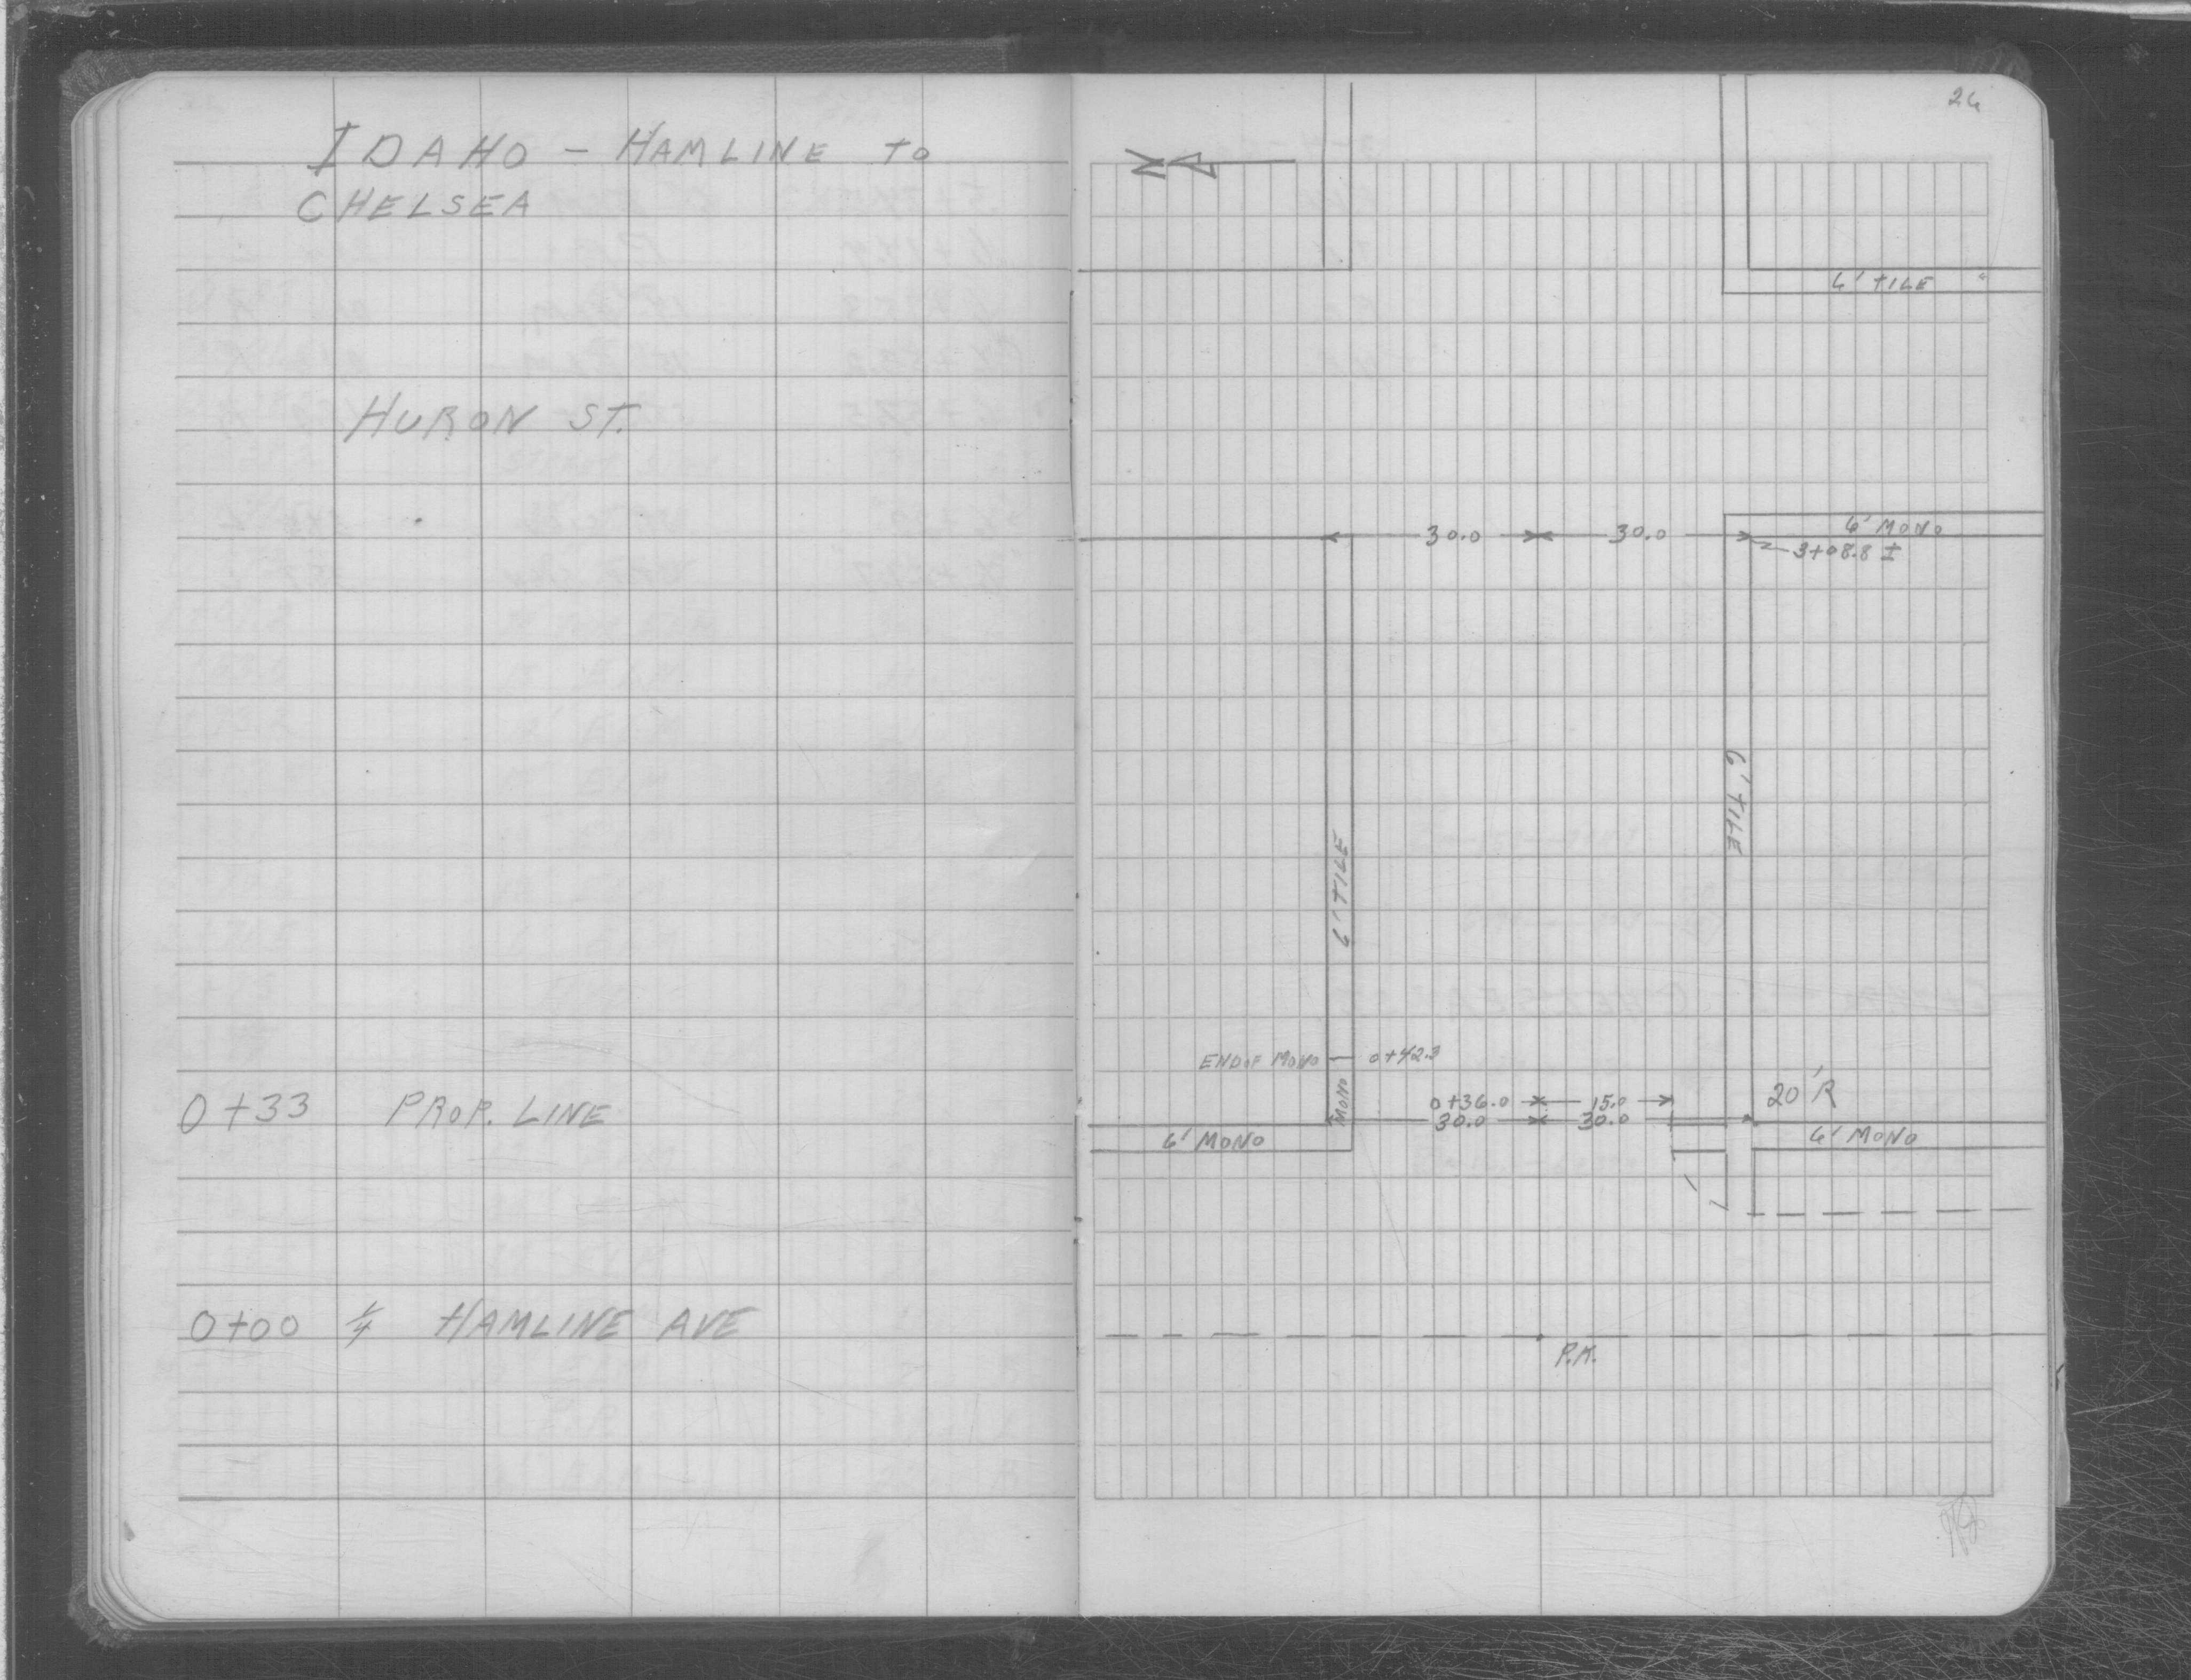 IDAHO - HAMLINE TO
CHELSEA
HURON ST.
0+33 PROP. LINE
0+00 ¼ HAMLINE AVE
26
N
6' TILE
30.0 30.0
6' MONO
3+08.8 ±
6' TILE
6' TILE
END OF MONO
0+42.3
MONO
0+36.0 15.0
20'R
30.0 30.0
6' MONO
6' MONO
P.K.